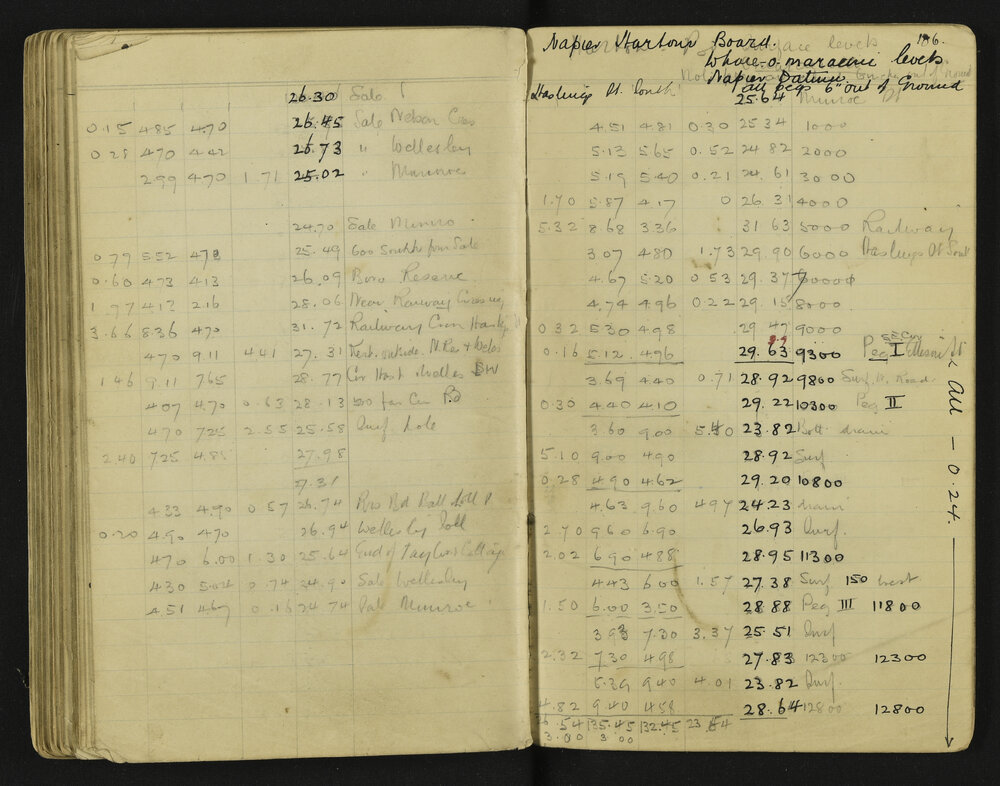 26.30 Sale
0.15 485 4.70 26.45 Sale Nelson Cres
0.28 470 442 26.73 " Wellesley
299 470 1.71 25.02 " Munroe
24.70 Sale Munro
0.79 552 473 25.49 600 South from Sale
0.60 473 413 26.09 Boro Reserve
1.97 413 216 28.06 Near Railway Crossing
3.66 836 470 31.72 Railway Cron
470 9.11 441 27.31 Kerb outside
1.46 9.11 765 28.77 Cor Hast Welles
407 4.70 0.63 28.13
470 725 2.55 25.58 Surf
2.40 725 4.85 27.98
27.31
433 4.90 0.57 26.74
0.20 4.90 470 26.94 Wellesley
470 6.00 1.30 25.64 End of Taylors Cottage
430 5.04 0.74 24.90 Sale Wellesley
4.51 467 0.16 24.74 Sale Munroe
186.
Napier Harbour Board.
Whare-o-maraenui levels
Napier Datum
Hastings St South all pegs 6" out of Ground
25.64 Munroe St
4.51 4.81 0.30 25 34 1000
5.13 5.65 0.52 24 82 2000
5.19 5.40 0.21 24.61 3000
1.70 5.87 4.17 0 26 31 4000
5.32 8 68 3.36 31 63 5000 Railway
3.07 480 1.73 29.90 6000 Hastings St South
4.67 5.20 0 53 29.37 7000
4.74 4.96 0.22 29.15 8000
0 32 530 498 29 47 9000
0.16 5.12 496 29.63 9300 Peg I
3.69 440 0.71 28.92 9800 Surf. Road
0.30 4.40 4.10 29.22 10300 Peg II
3.60 9.00 5.40 23.82 Bott. drain
5.10 9.00 4.90 28.92 Surf
0.28 490 4.62 29.20 10800
4.63 9.60 497 24.23 drain
2.70 9.60 6.90 26.93 Surf.
2.02 6.90 4.88 28.95 11300
443 600 1.57 27.38 Surf 150 west
1.50 6.00 3.50 28.88 Peg III 11800
3 93 7.30 3.37 25.51 Surf
2.32 7.30 4.98 27.83 12300 12300
5.39 9.40 4.01 23.82 Surf.
4.82 9.40 458 28.64 12800 12800
26.54 135.45 132.45 23.54
3.00 3.00
All – 0.24.